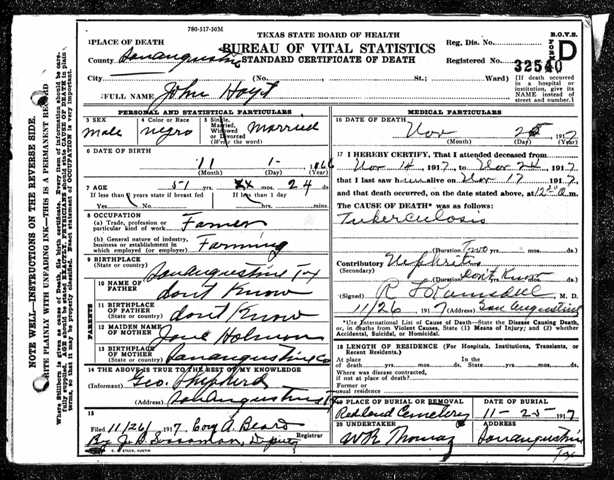 780-517-30M
TEXAS STATE BOARD OF HEALTH
B.O.V.S.
BUREAU OF VITAL STATISTICS
STANDARD CERTIFICATE OF DEATH
FORM D
Reg. Dis. No.
Registered No. 32540
1 PLACE OF DEATH
County Sanaugustine
City (No. St.; Ward)
(If death occurred in a hospital or institution, give its NAME instead of street and number.)
2 FULL NAME John Hoyt
PERSONAL AND STATISTICAL PARTICULARS
3 SEX male
4 Color or Race negro
5 Single, Married, Widowed or Divorced (Write the word) Married
6 DATE OF BIRTH
11 1- 1866
(Month) (Day) (Year)
7 AGE 51 yrs. mos. 24 ds.
If less than 2 years state if breast fed
If less than 1 day
Yes No hrs. min.
8 OCCUPATION
(a) Trade, profession or particular kind of work Farmer
(b) General nature of industry, business or establishment in which employed (or employer) Farming
9 BIRTHPLACE (State or country) Sanaugustine Tx
PARENTS
10 NAME OF FATHER don't Know
11 BIRTHPLACE OF FATHER (State or country) don't Know
12 MAIDEN NAME OF MOTHER Jane Holmon
13 BIRTHPLACE OF MOTHER (State or country) Sanaugustine Co
14 THE ABOVE IS TRUE TO THE BEST OF MY KNOWLEDGE
(Informant) Geo. Shepherd
(Address) Sanaugustine Tx
15
Filed 11/26 1917 Coy A. Beard
By J. B. Sossaman, Deputy Registrar
MEDICAL PARTICULARS
16 DATE OF DEATH
Nov 25 1917
(Month) (Day) (Year)
17 I HEREBY CERTIFY, That I attended deceased from
Nov 14 1917 to Nov 24 1917
that I last saw him alive on Nov 17 1917
and that death occurred, on the date stated above, at 12 m.
The CAUSE OF DEATH* was as follows:
Tuberculosis
(Duration) Two yrs. mos. ds.
Contributory (Secondary) Nephritis
(Duration) Don't Know mos. ds.
(Signed) M. D.
11/26 1917 (Address) San Augustine
*Use International List of Cause of Death—State the Disease Causing Death, or, in deaths from Violent Causes, State (1) Means of Injury; and (2) whether Accidental, Suicidal, or Homicidal.
18 LENGTH OF RESIDENCE (For Hospitals, Institutions, Transients, or Recent Residents.)
At place of death yrs. mos. ds. In the State yrs. mos. ds.
Where was disease contracted, if not at place of death?
Former or usual residence
19 PLACE OF BURIAL OR REMOVAL Redland Cemetery
DATE OF BURIAL 11-25- 1917
20 UNDERTAKER W R Thomas
ADDRESS Sanaugustine Tx
NOTE WELL—INSTRUCTIONS ON THE REVERSE SIDE.
WRITE PLAINLY WITH UNFADING INK—THIS IS A PERMANENT RECORD